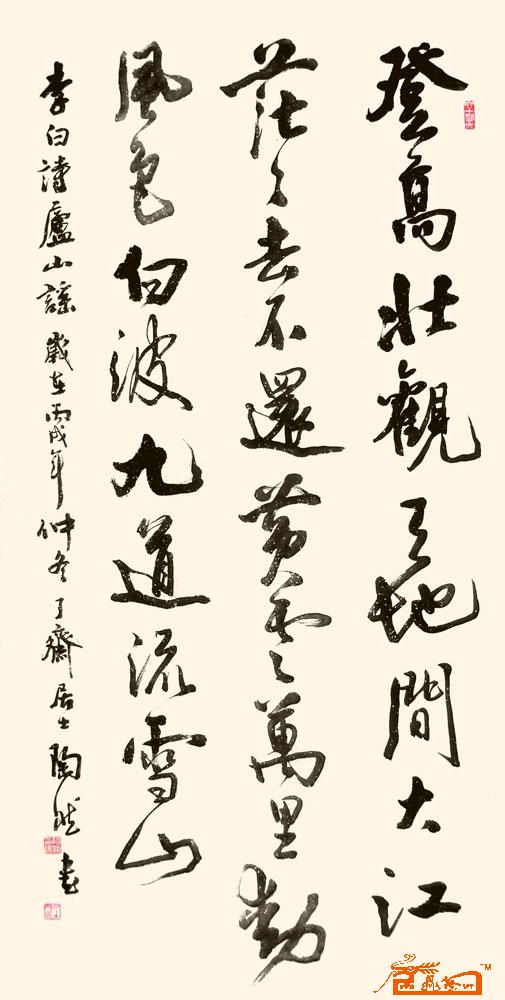 登高壯觀天地間大江
茫々去不還黄雲萬里動
風色白波九道流雪山
李白詩廬山謠 歲在丙戌年仲冬 了齋居士陶然書